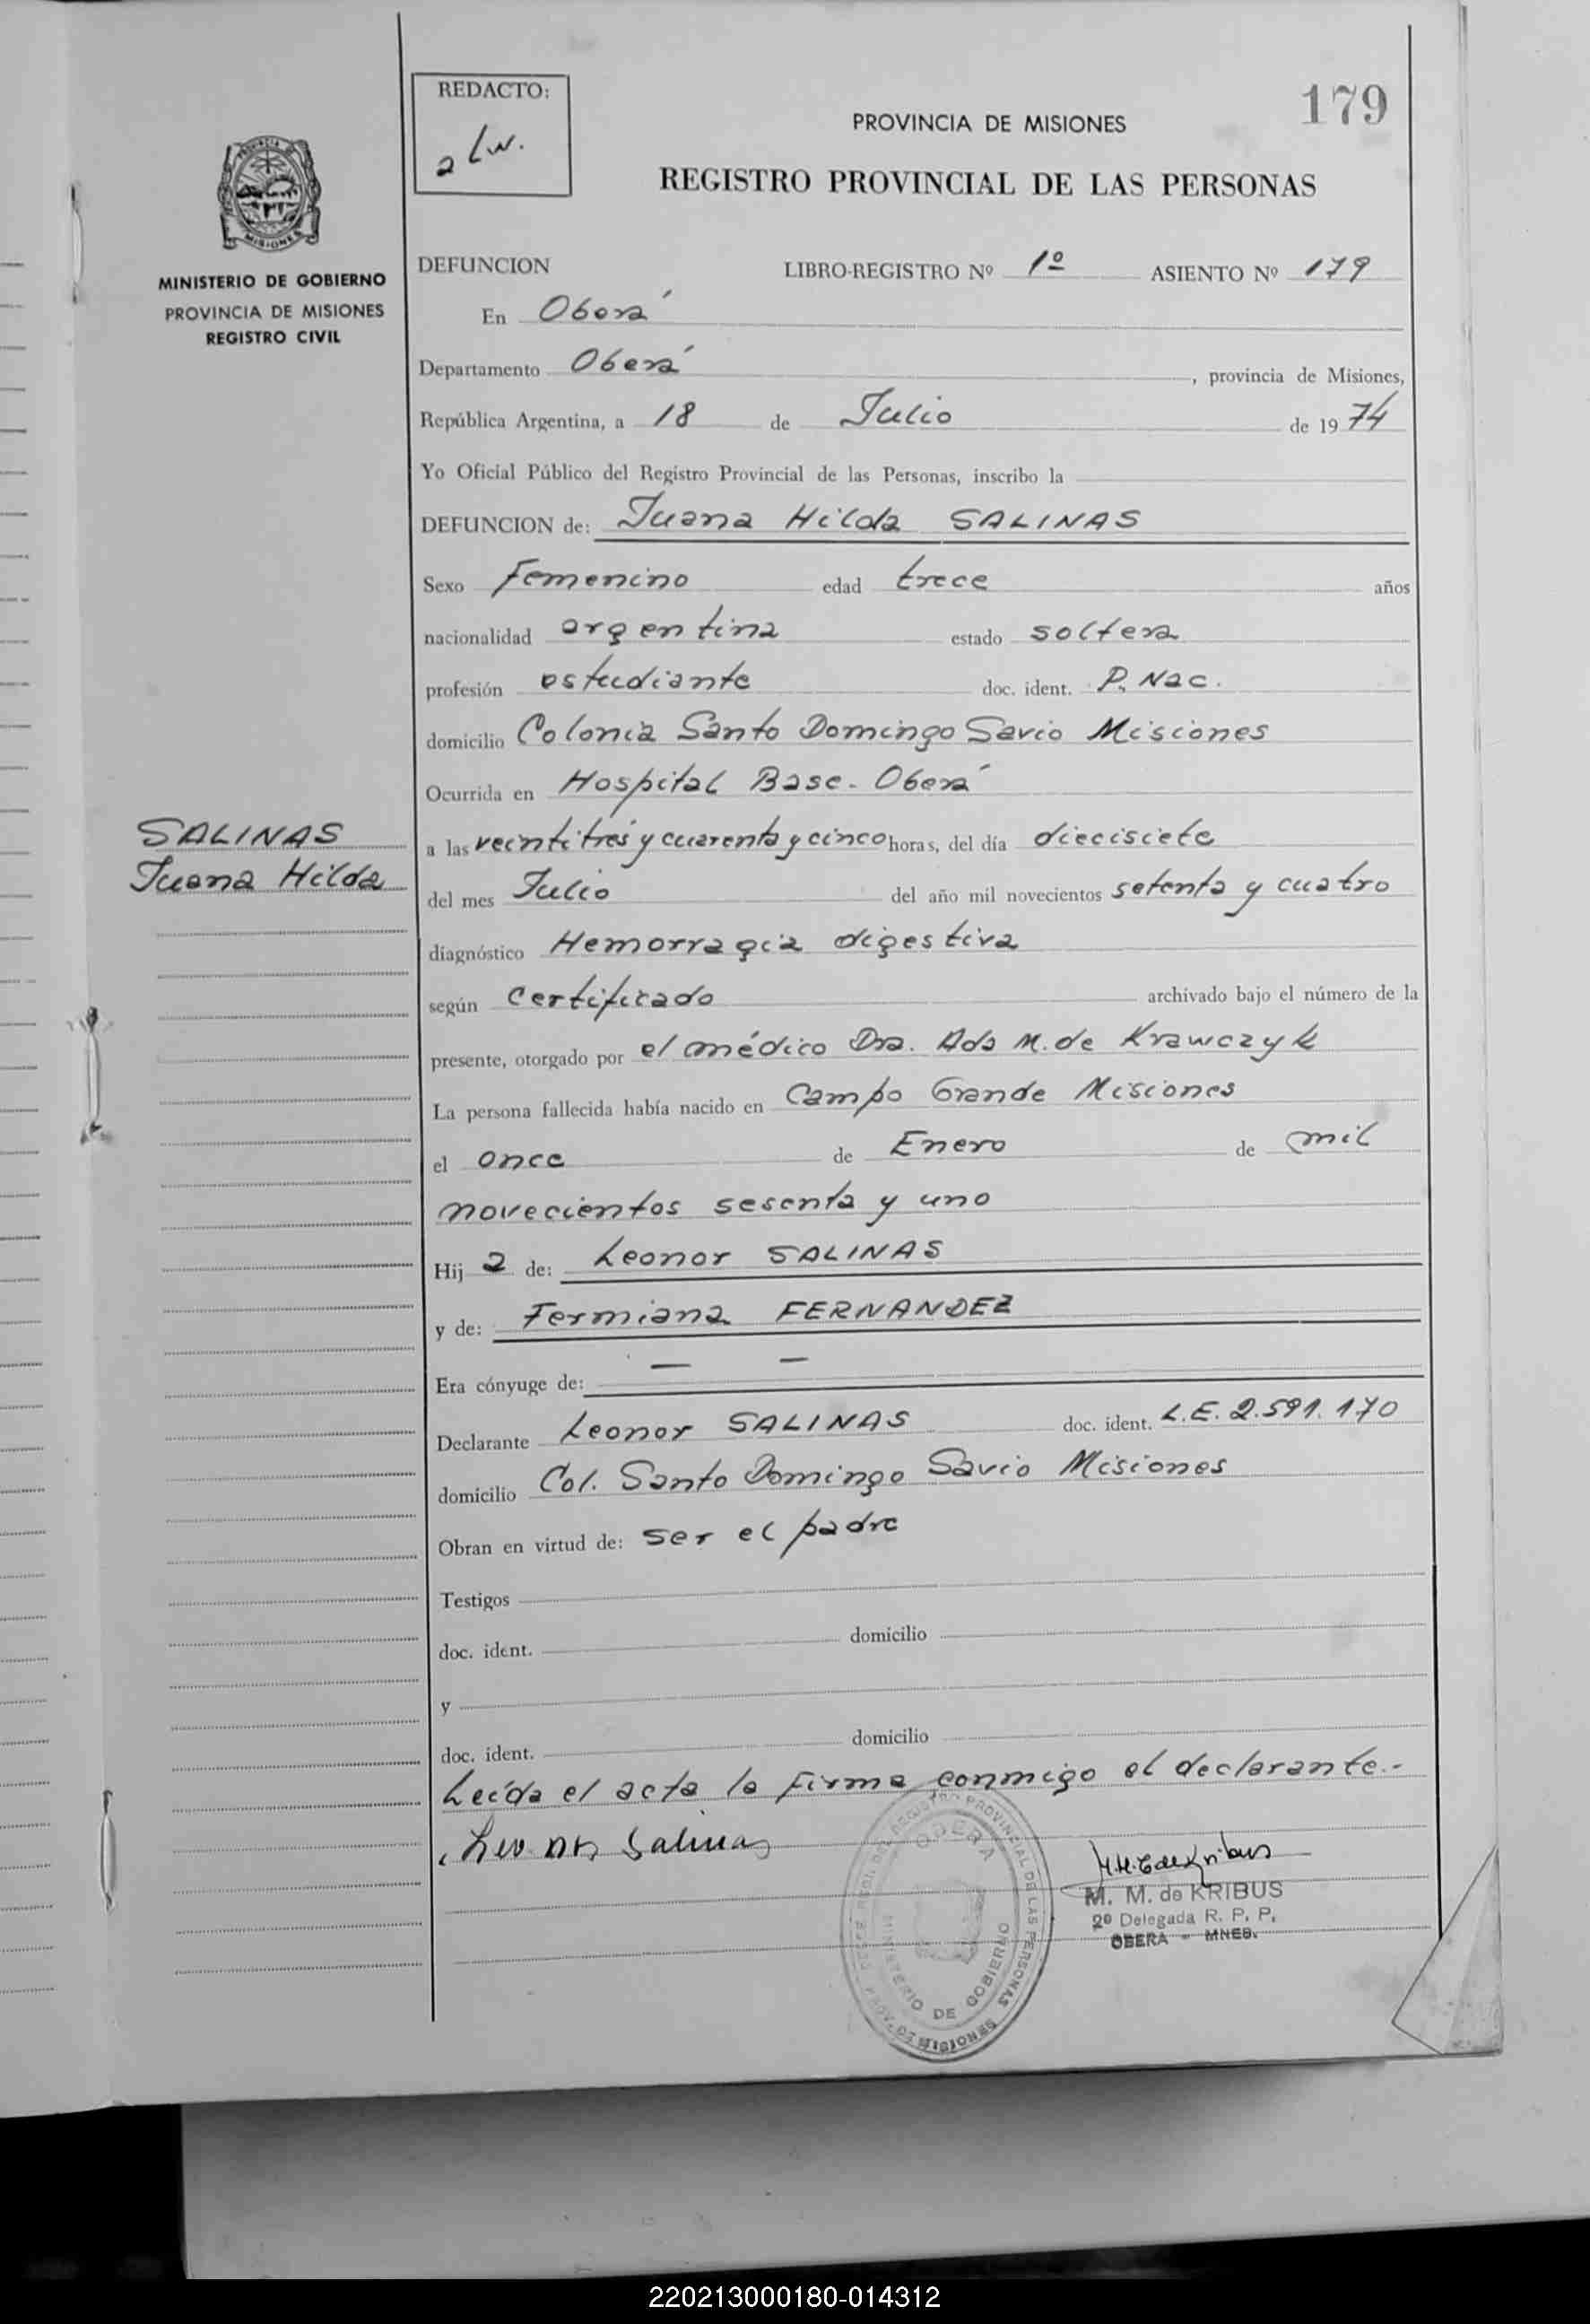 REDACTO:
179
PROVINCIA DE MISIONES
REGISTRO PROVINCIAL DE LAS PERSONAS
MISIONES
MINISTERIO DE GOBIERNO
PROVINCIA DE MISIONES
REGISTRO CIVIL
DEFUNCION LIBRO-REGISTRO Nº 1º ASIENTO Nº 179
En Oberá
Departamento Oberá, provincia de Misiones,
República Argentina, a 18 de Julio de 1974
Yo Oficial Público del Registro Provincial de las Personas, inscribo la
DEFUNCION de: Juana Hilda SALINAS
Sexo Femenino edad trece años
nacionalidad argentina estado soltera
profesión estudiante doc. ident. P. Nac.
domicilio Colonia Santo Domingo Savio Misiones
Ocurrida en Hospital Base - Oberá
SALINAS
Juana Hilda
a las veintitrés y cuarenta y cinco horas, del día diecisiete
del mes Julio del año mil novecientos setenta y cuatro
diagnóstico Hemorragia digestiva
según certificado archivado bajo el número de la
presente, otorgado por el médico Dra. Ada M. de Krawczyk
La persona fallecida había nacido en Campo Grande Misiones
el once de Enero de mil
novecientos sesenta y uno
Hija de: Leonor SALINAS
y de: Fermiana FERNANDEZ
Era cónyuge de: — —
Declarante Leonor SALINAS doc. ident. L.E. 2.591.170
domicilio Col. Santo Domingo Savio Misiones
Obran en virtud de: ser el padre
Testigos
doc. ident. domicilio
y
doc. ident. domicilio
Leída el acta la firma conmigo el declarante.-
Leonor Salinas
M. M. de KRIBUS
2º Delegada R. P. P.
OBERA - MNES.
REGISTRO PROVINCIAL DE LAS PERSONAS
OBERA
MINISTERIO DE GOBIERNO
PROV. DE MISIONES
220213000180-014312